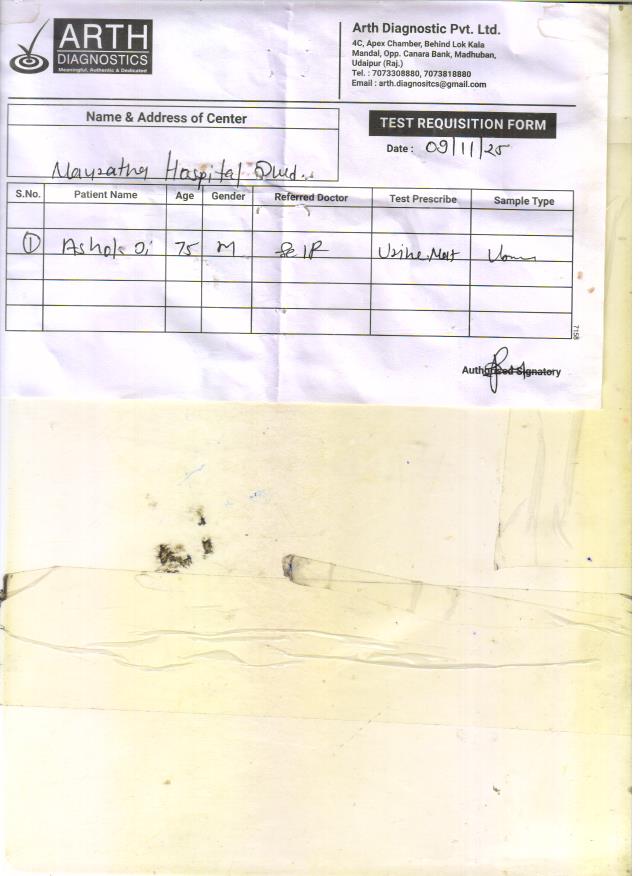 ARTH
DIAGNOSTICS
Meaningful, Authentic & Dedicated
Arth Diagnostic Pvt. Ltd.
4C, Apex Chamber, Behind Lok Kala
Mandal, Opp. Canara Bank, Madhuban,
Udaipur (Raj.)
Tel. : 7073308880, 7073818880
Email : arth.diagnositcs@gmail.com
Name & Address of Center
TEST REQUISITION FORM
Date : 09/11/25
Hospital
S.No. Patient Name Age Gender Referred Doctor Test Prescribe Sample Type
1 Ashok 75 M Self
7158
Authorised Signatory